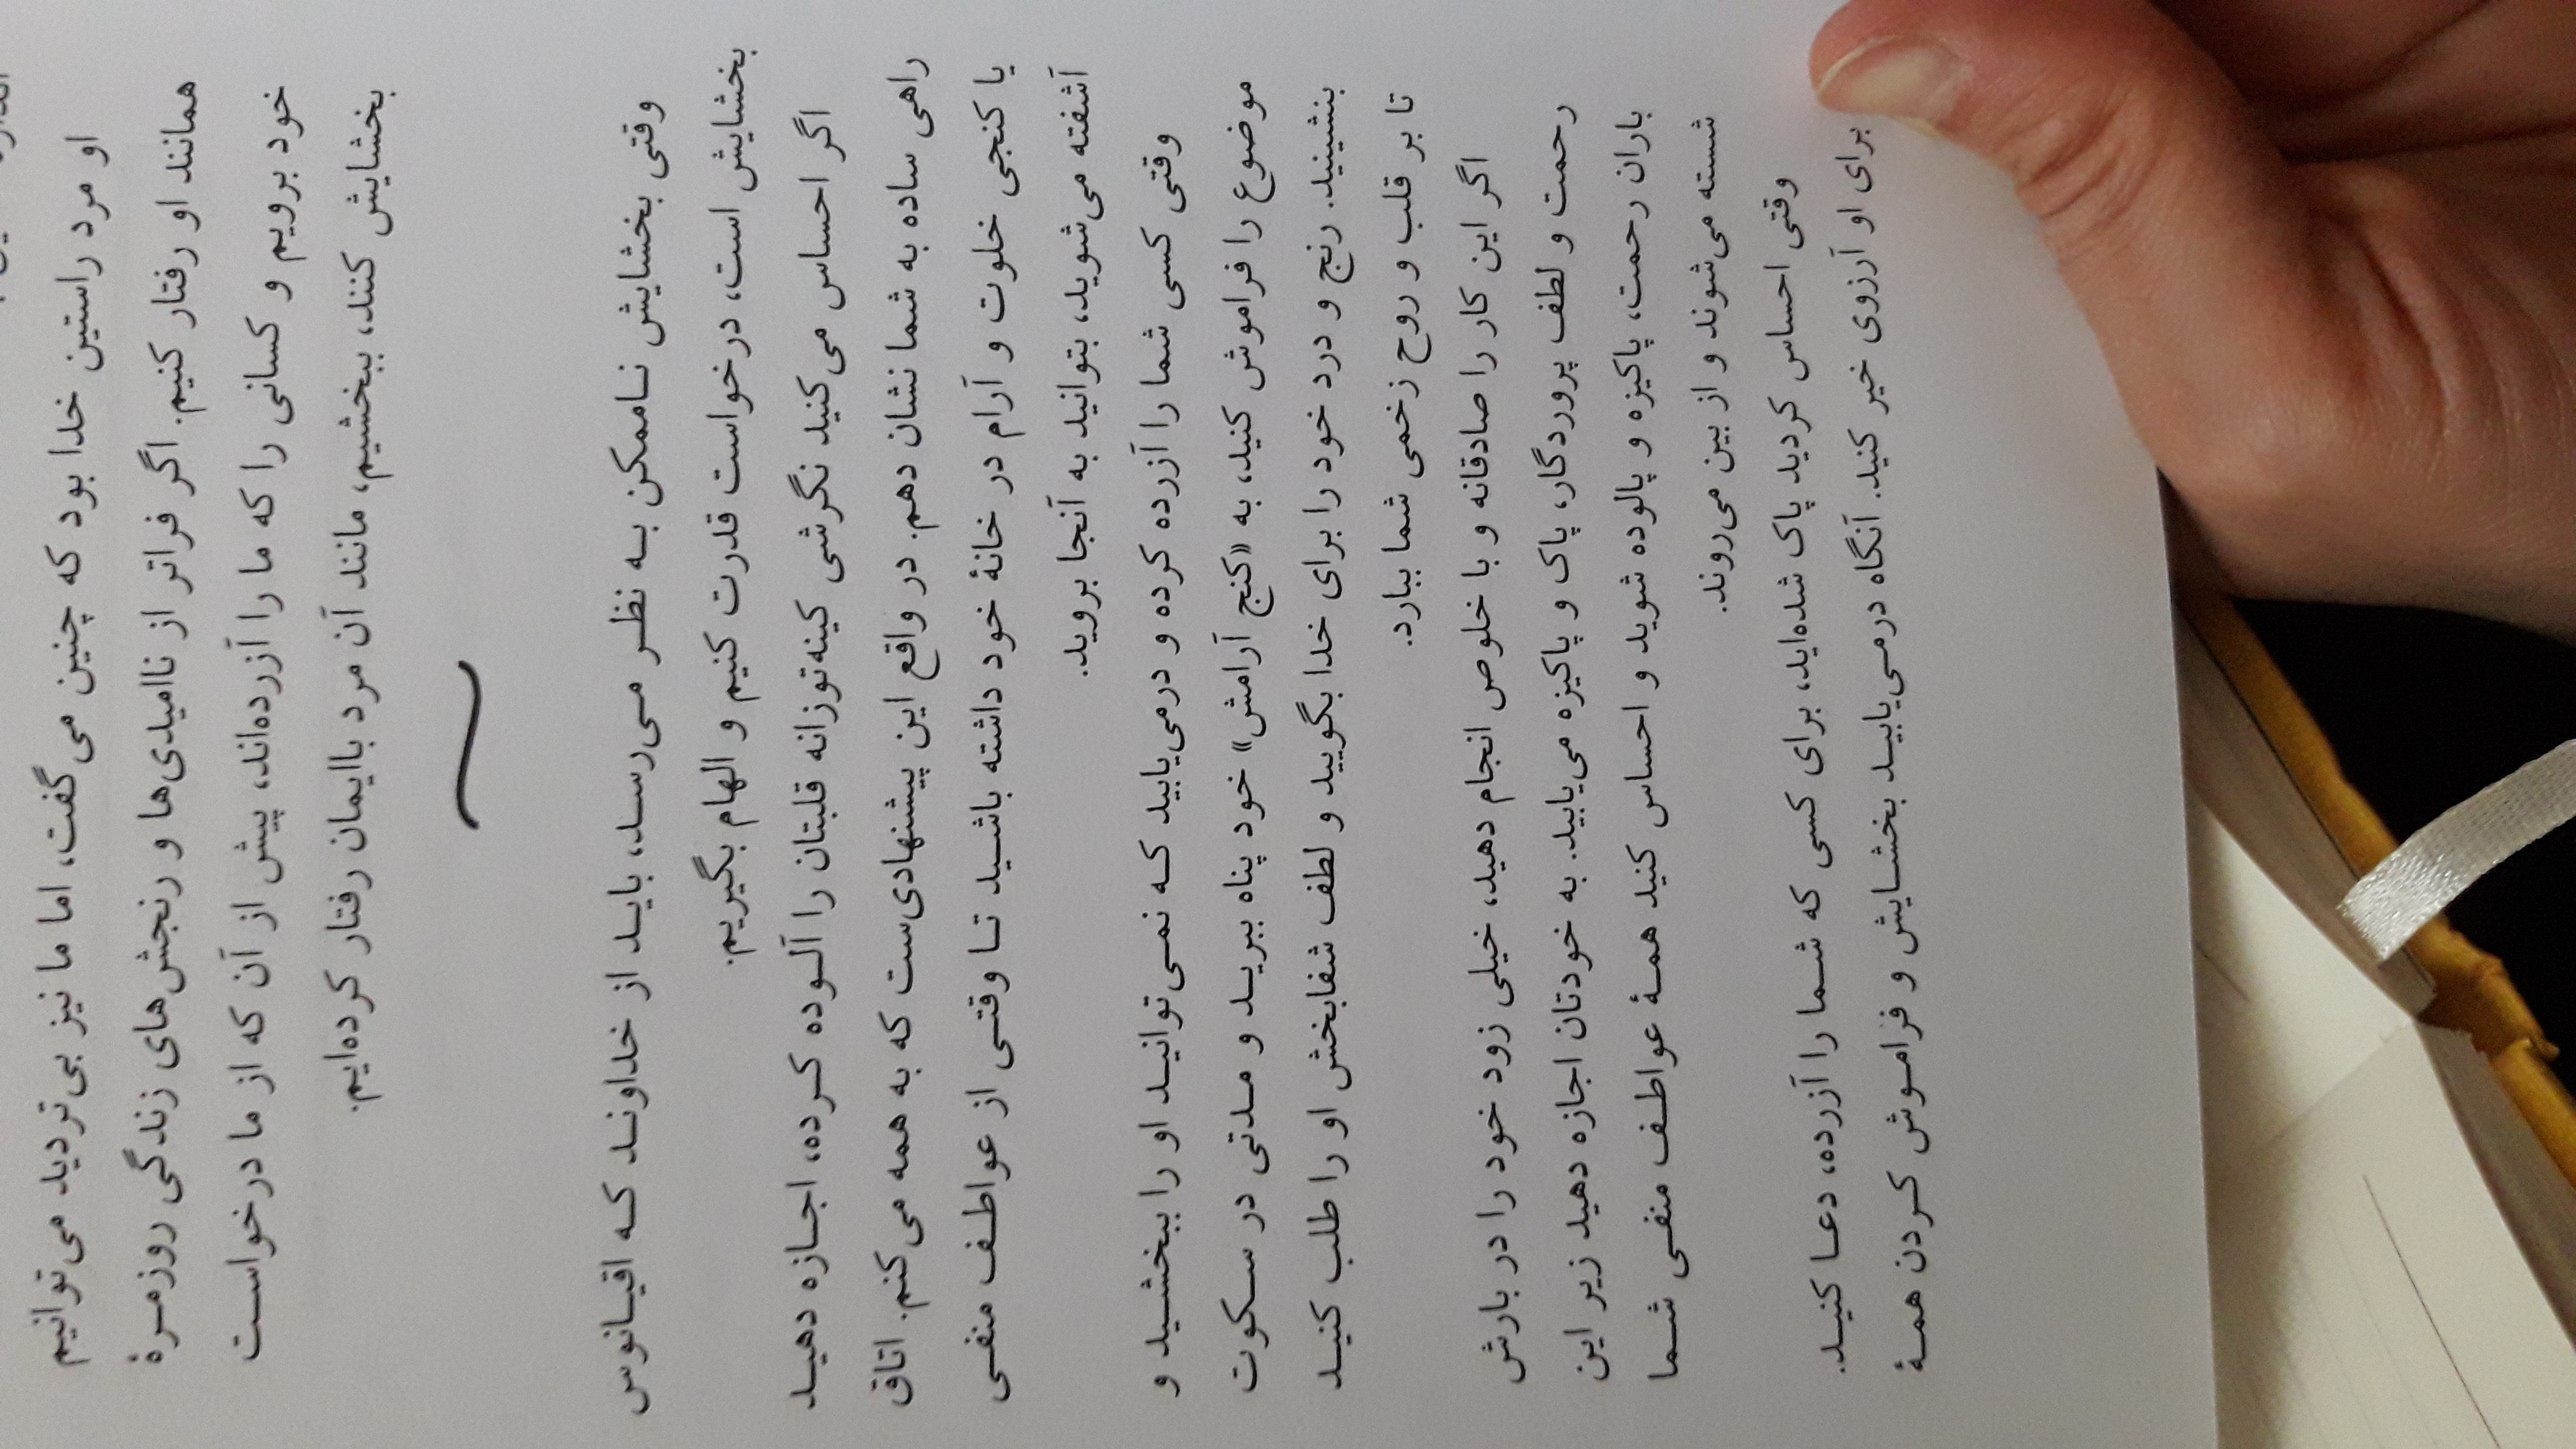 او مرد راستین خدا بود که چنین می‌گفت، اما ما نیز بی‌تردید می‌توانیم
همانند او رفتار کنیم. اگر فراتر از ناامیدی‌ها و رنجش‌های زندگی روزمرهٔ
خود برویم و کسانی را که ما را آزرده‌اند، پیش از آن که از ما درخواست
بخشایش کنند، ببخشیم، مانند آن مرد باایمان رفتار کرده‌ایم.
وقتی بخشایش ناممکن به نظر می‌رسد، باید از خداوند که اقیانوس
بخشایش است، درخواست قدرت کنیم و الهام بگیریم.
اگر احساس می‌کنید نگرشی کینه‌توزانه قلبتان را آلوده کرده، اجازه دهید
راهی ساده به شما نشان دهم. در واقع این پیشنهادی‌ست که به همه می‌کنم. اتاق
یا کنجی خلوت و آرام در خانهٔ خود داشته باشید تا وقتی از عواطف منفی
آشفته می‌شوید، بتوانید به آنجا بروید.
وقتی کسی شما را آزرده کرده و درمی‌یابید که نمی‌توانید او را ببخشید و
موضوع را فراموش کنید، به «کنج آرامش» خود پناه ببرید و مدتی در سکوت
بنشینید. رنج و درد خود را برای خدا بگویید و لطف شفابخش او را طلب کنید
تا بر قلب و روح زخمی شما ببارد.
اگر این کار را صادقانه و با خلوص انجام دهید، خیلی زود خود را در بارش
رحمت و لطف پروردگار، پاک و پاکیزه می‌یابید. به خودتان اجازه دهید زیر این
باران رحمت، پاکیزه و پالوده شوید و احساس کنید همهٔ عواطف منفی شما
شسته می‌شوند و از بین می‌روند.
وقتی احساس کردید پاک شده‌اید، برای کسی که شما را آزرده، دعا کنید.
برای او آرزوی خیر کنید. آنگاه درمی‌یابید بخشایش و فراموش کردن همهٔ